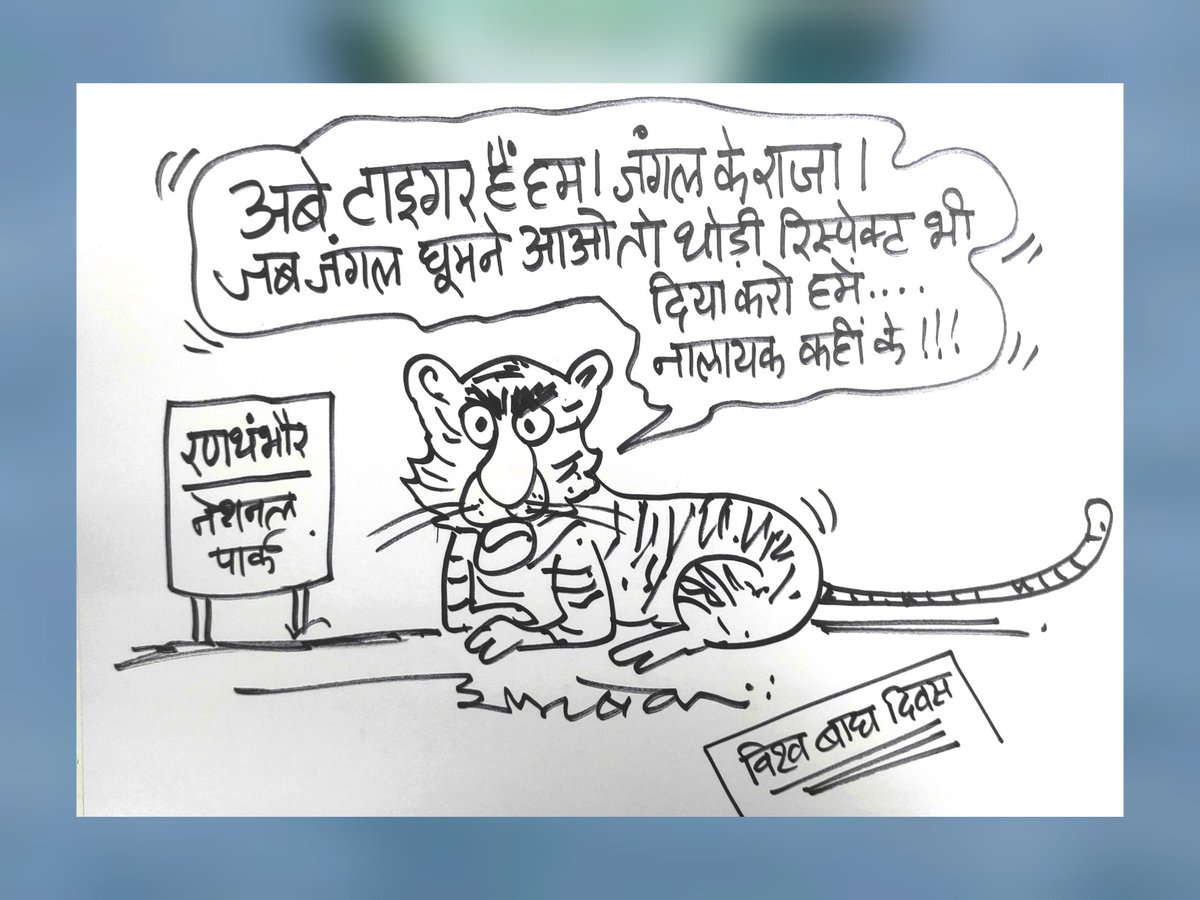 अबे टाइगर हैं हम। जंगल के राजा।
जब जंगल घूमने आओ तो थोड़ी रिस्पेक्ट भी
दिया करो हमें....
नालायक कहीं के!!!
रणथंभौर
नेशनल
पार्क
विश्व बाघ दिवस